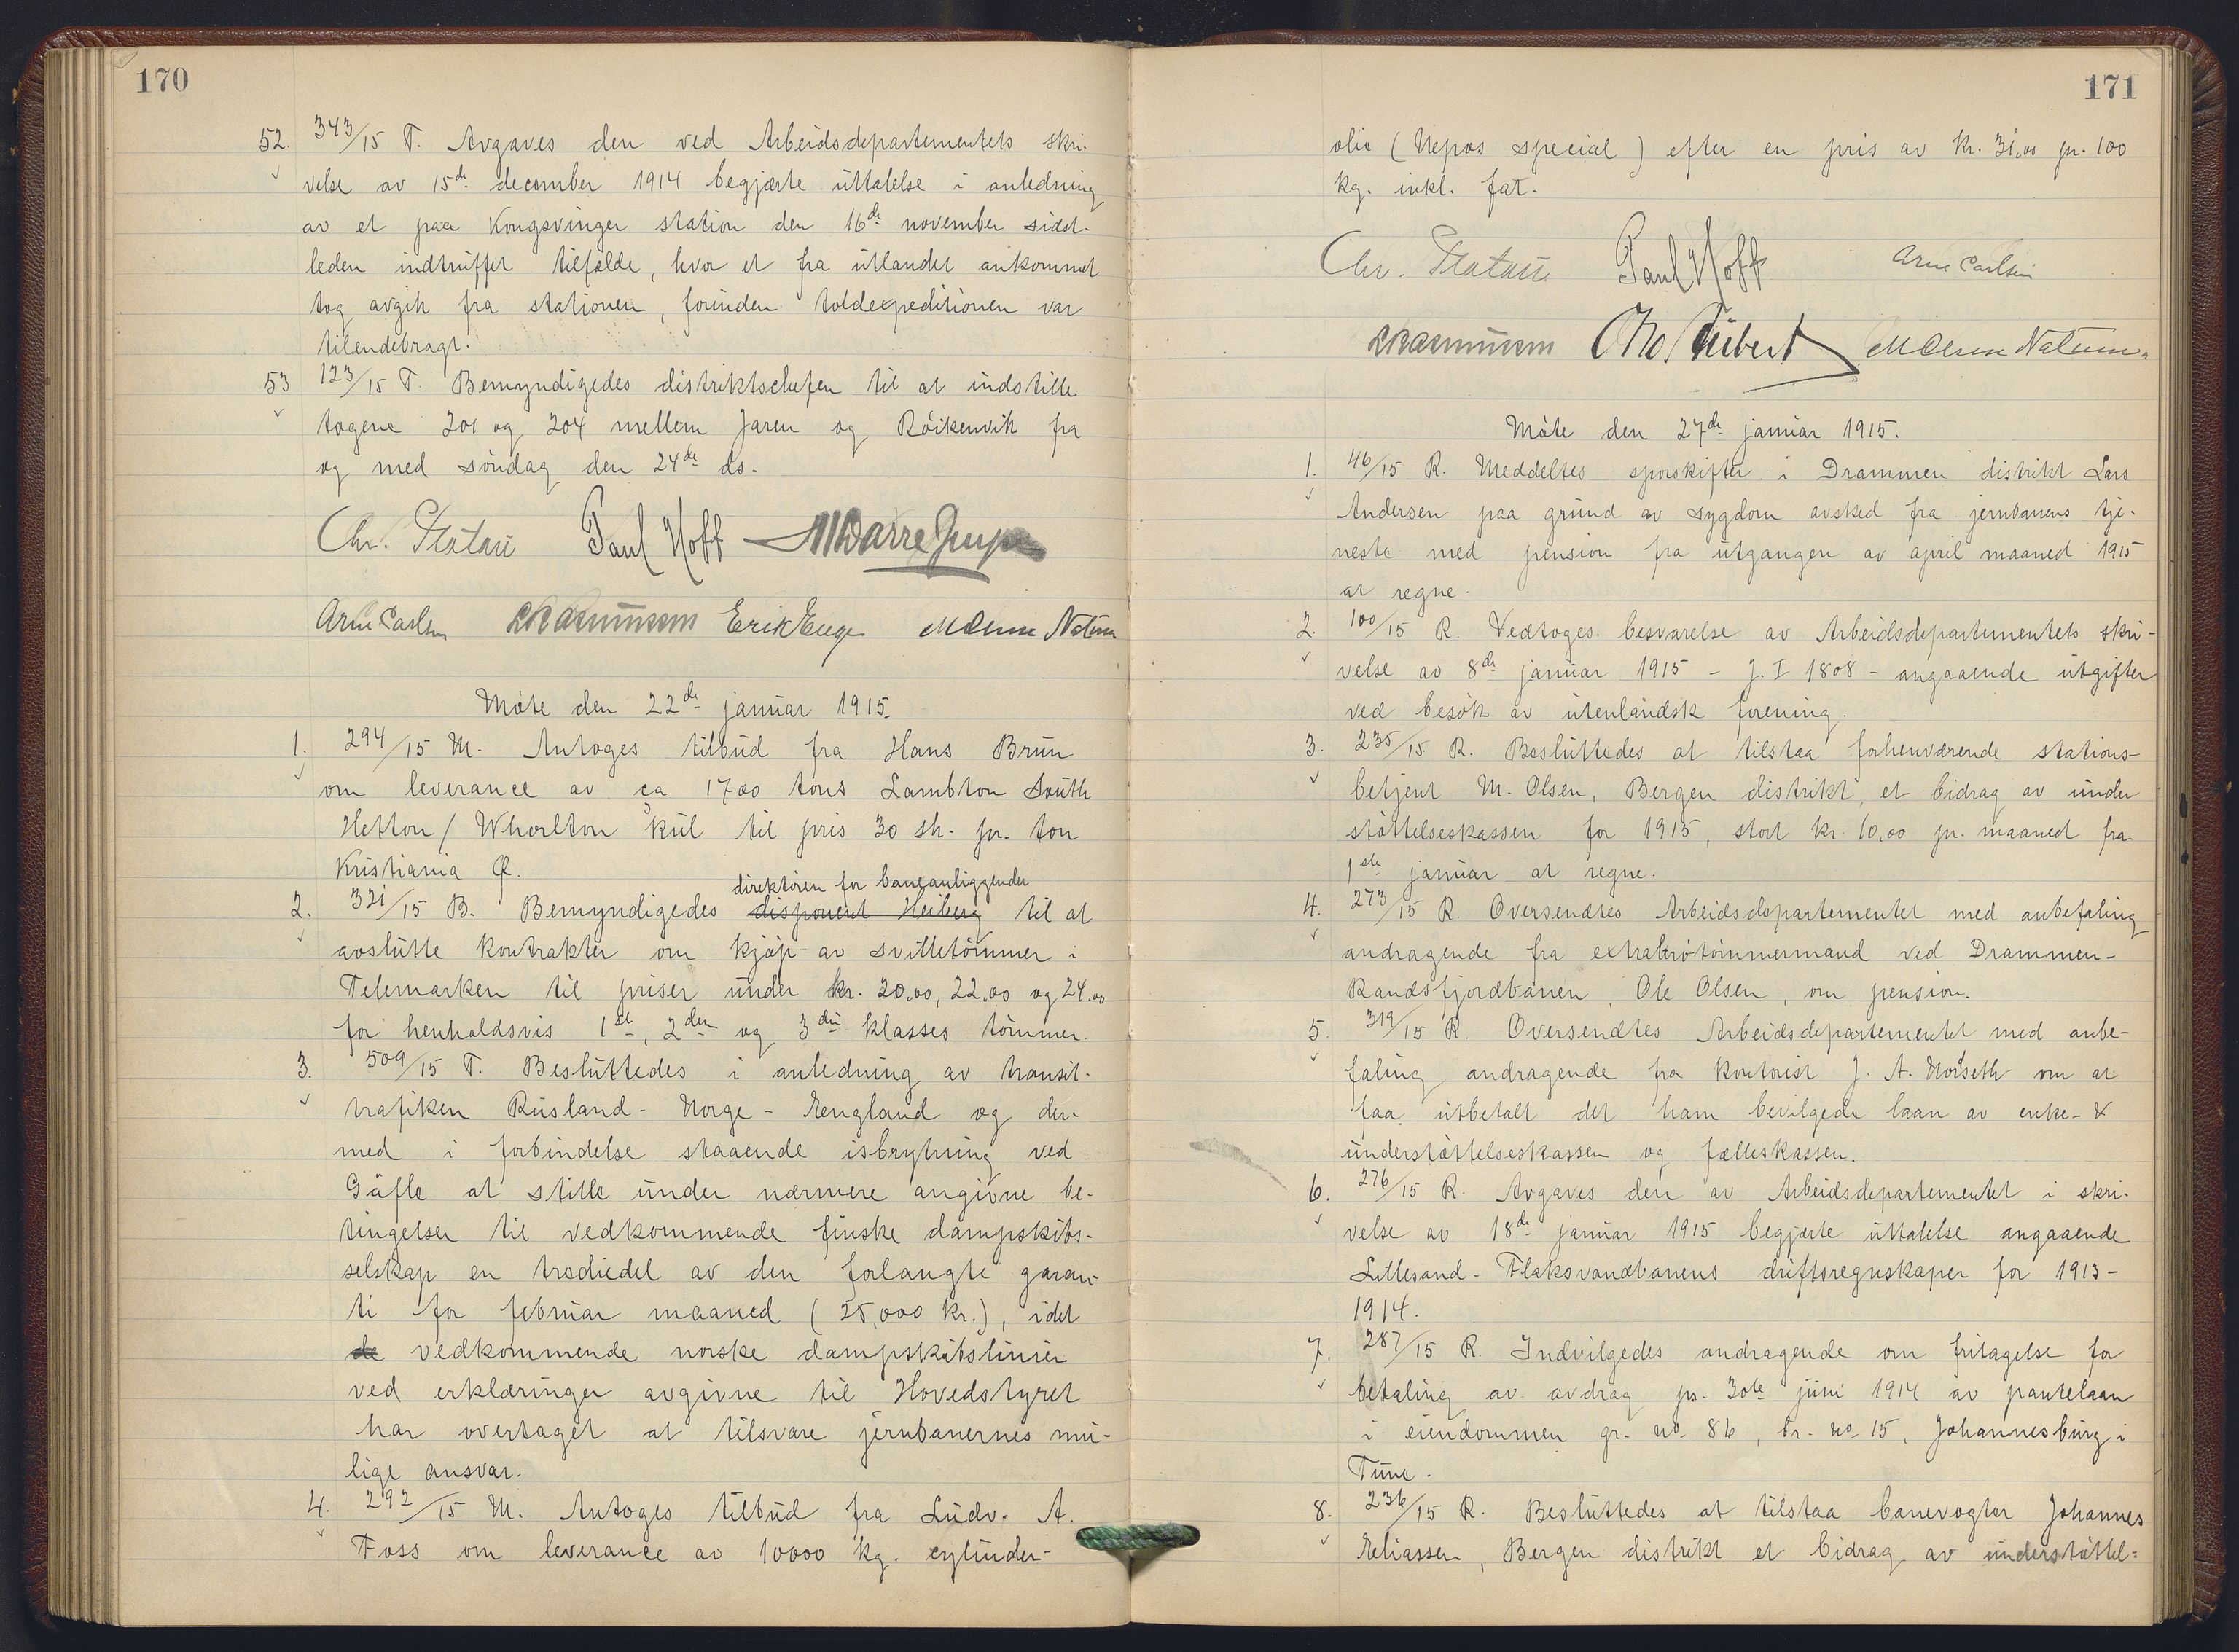 170
52. 343/15 T. Avgaves den ved Arbeidsdepartementets skri-
velse av 15de december 1914 begjærte uttalelse i anledning
av et paa Kongsvinger station den 16de november sidst-
leden indtruffet tilfælde, hvor et fra utlandet ankommet
tog avgik fra stationen, forinden toldexpeditionen var
tilendebragt.
53 123/15 T. Bemyndigedes distriktschefen til at indstille
togene 201 og 204 mellem Jaren og Röikenvik fra
og med söndag den 24de ds.
Chr. Platou Paul Hoff
Arne Carlsen CRasmussen Erik Enge
Möte den 22de januar 1915.
1. 294/15 M. Antoges tilbud fra Hans Brun
om leverance av ca 1700 tons Lambton South
Hetton / Whorlton kul til pris 30 sh. pr. ton
Kristiania Ø.
direktören for baneanliggender
2. 321/15 B. Bemyndigedes disponent Heiberg til at
avslutte kontrakter om kjöp av svilletömmer i
Telemarken til priser under kr. 20,00, 22,00 og 24,00
for henholdsvis 1ste, 2den og 3die klasses tömmer.
3. 509/15 T. Besluttedes i anledning av transit-
trafiken Rusland - Norge - England og der-
med i forbindelse staaende isbrytning ved
Gäfle at stille under nærmere angivne be-
tingelser til vedkommende finske dampskibs-
selskap en trediedel av den forlangte garan-
ti for februar maaned (25,000 kr.), idet
de vedkommende norske dampskibslinier
ved erklæringer avgivne til Hovedstyret
har overtaget at tilsvare jernbanernes mu-
lige ansvar.
4. 292/15 M. Antoges tilbud fra Ludv. A.
Foss om leverance av 10000 kg. cylinder-
171
olie (Nepos special) efter en pris av kr. 31,00 pr. 100
kg. inkl. fat.
Chr. Platou Paul Hoff Arne Carlsen
CRasmussen
Möte den 27de januar 1915.
1. 46/15 R. Meddeltes sporskifter i Drammen distrikt Lars
Andersen paa grund av sygdom avsked fra jernbanens tje-
neste med pension fra utgangen av april maaned 1915
at regne.
2. 100/15 R. Vedtoges besvarelse av Arbeidsdepartementets skri-
velse av 8de januar 1915 - J. I 1808 - angaaende utgifter
ved besök av utenlandsk forening.
3. 235/15 R. Besluttedes at tilstaa forhenværende stations-
betjent M. Olsen, Bergen distrikt, et bidrag av under
støttelseskassen for 1915, stort kr. 10,00 pr. maaned fra
1ste januar at regne.
4. 273/15 R. Oversendtes Arbeidsdepartementet med anbefaling
andragende fra extrabrotömmermand ved Drammen-
Randsfjordbanen, Ole Olsen, om pension.
5. 319/15 R. Oversendtes Arbeidsdepartementet med anbe-
faling andragende fra kontorist J. A. Morseth om at
faa utbetalt det ham bevilgede laan av enke- &
understöttelseskassen og fælleskassen.
6. 276/15 R. Avgaves den av Arbeidsdepartementet i skri-
velse av 18de januar 1915 begjærte uttalelse angaaende
Lillesand - Flaksvandbanens driftsregnskaper for 1913-
1914.
7. 287/15 R. Indvilgedes andragende om fritagelse for
betaling av avdrag pr. 30te juni 1914 av pantelaan
i eiendommen gr. no. 86, br. no. 15, Johannesburg i
Tune.
8. 236/15 R. Besluttedes at tilstaa banevogter Johannes
Eliassen, Bergen distrikt et bidrag av understøttel-